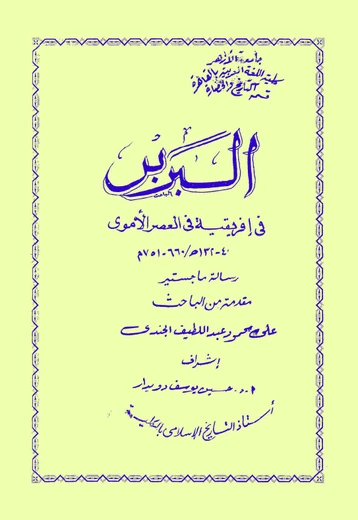 جامعة الأزهر
كلية اللغة العربية بالقاهرة
قسم التاريخ والحضارة
البربر
فى إفريقية فى العصر الأموى
٤٠-١٣٢هـ/٦٦٠-٧٥١م
رسالة ماجستير
مقدمة من الباحث
على محمود عبد اللطيف الجندى
إشراف
أ.د. حسين يوسف دويدار
أستاذ التاريخ الإسلامى بالكلية